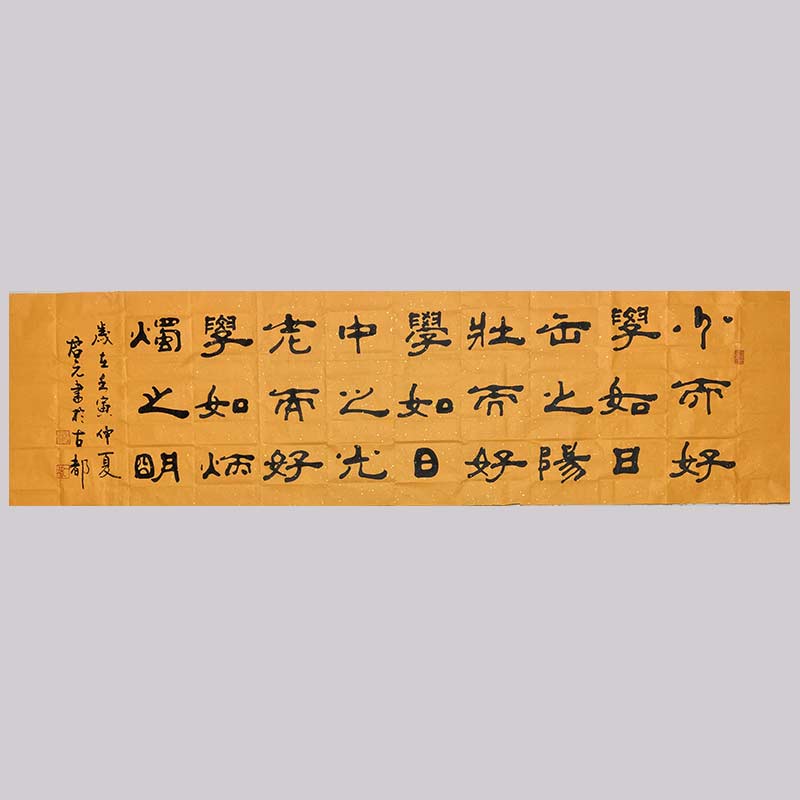 少而好
學如日
出之陽
壯而好
學如日
中之光
老而好
學如炳
燭之明
歲在壬寅仲夏
啓元書於古都